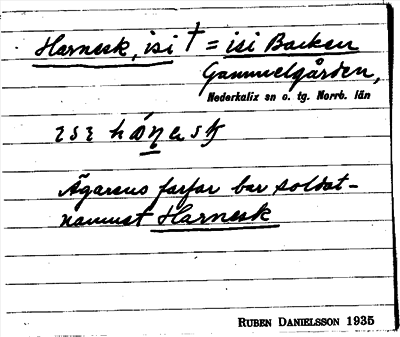 Harnesk, isi † = isi Backen
Gammelgården,
Nederkalix sn o. tg. Norrb. län
Ägarens farfar bar soldat-
namnet Harnesk
RUBEN DANIELSSON 1935